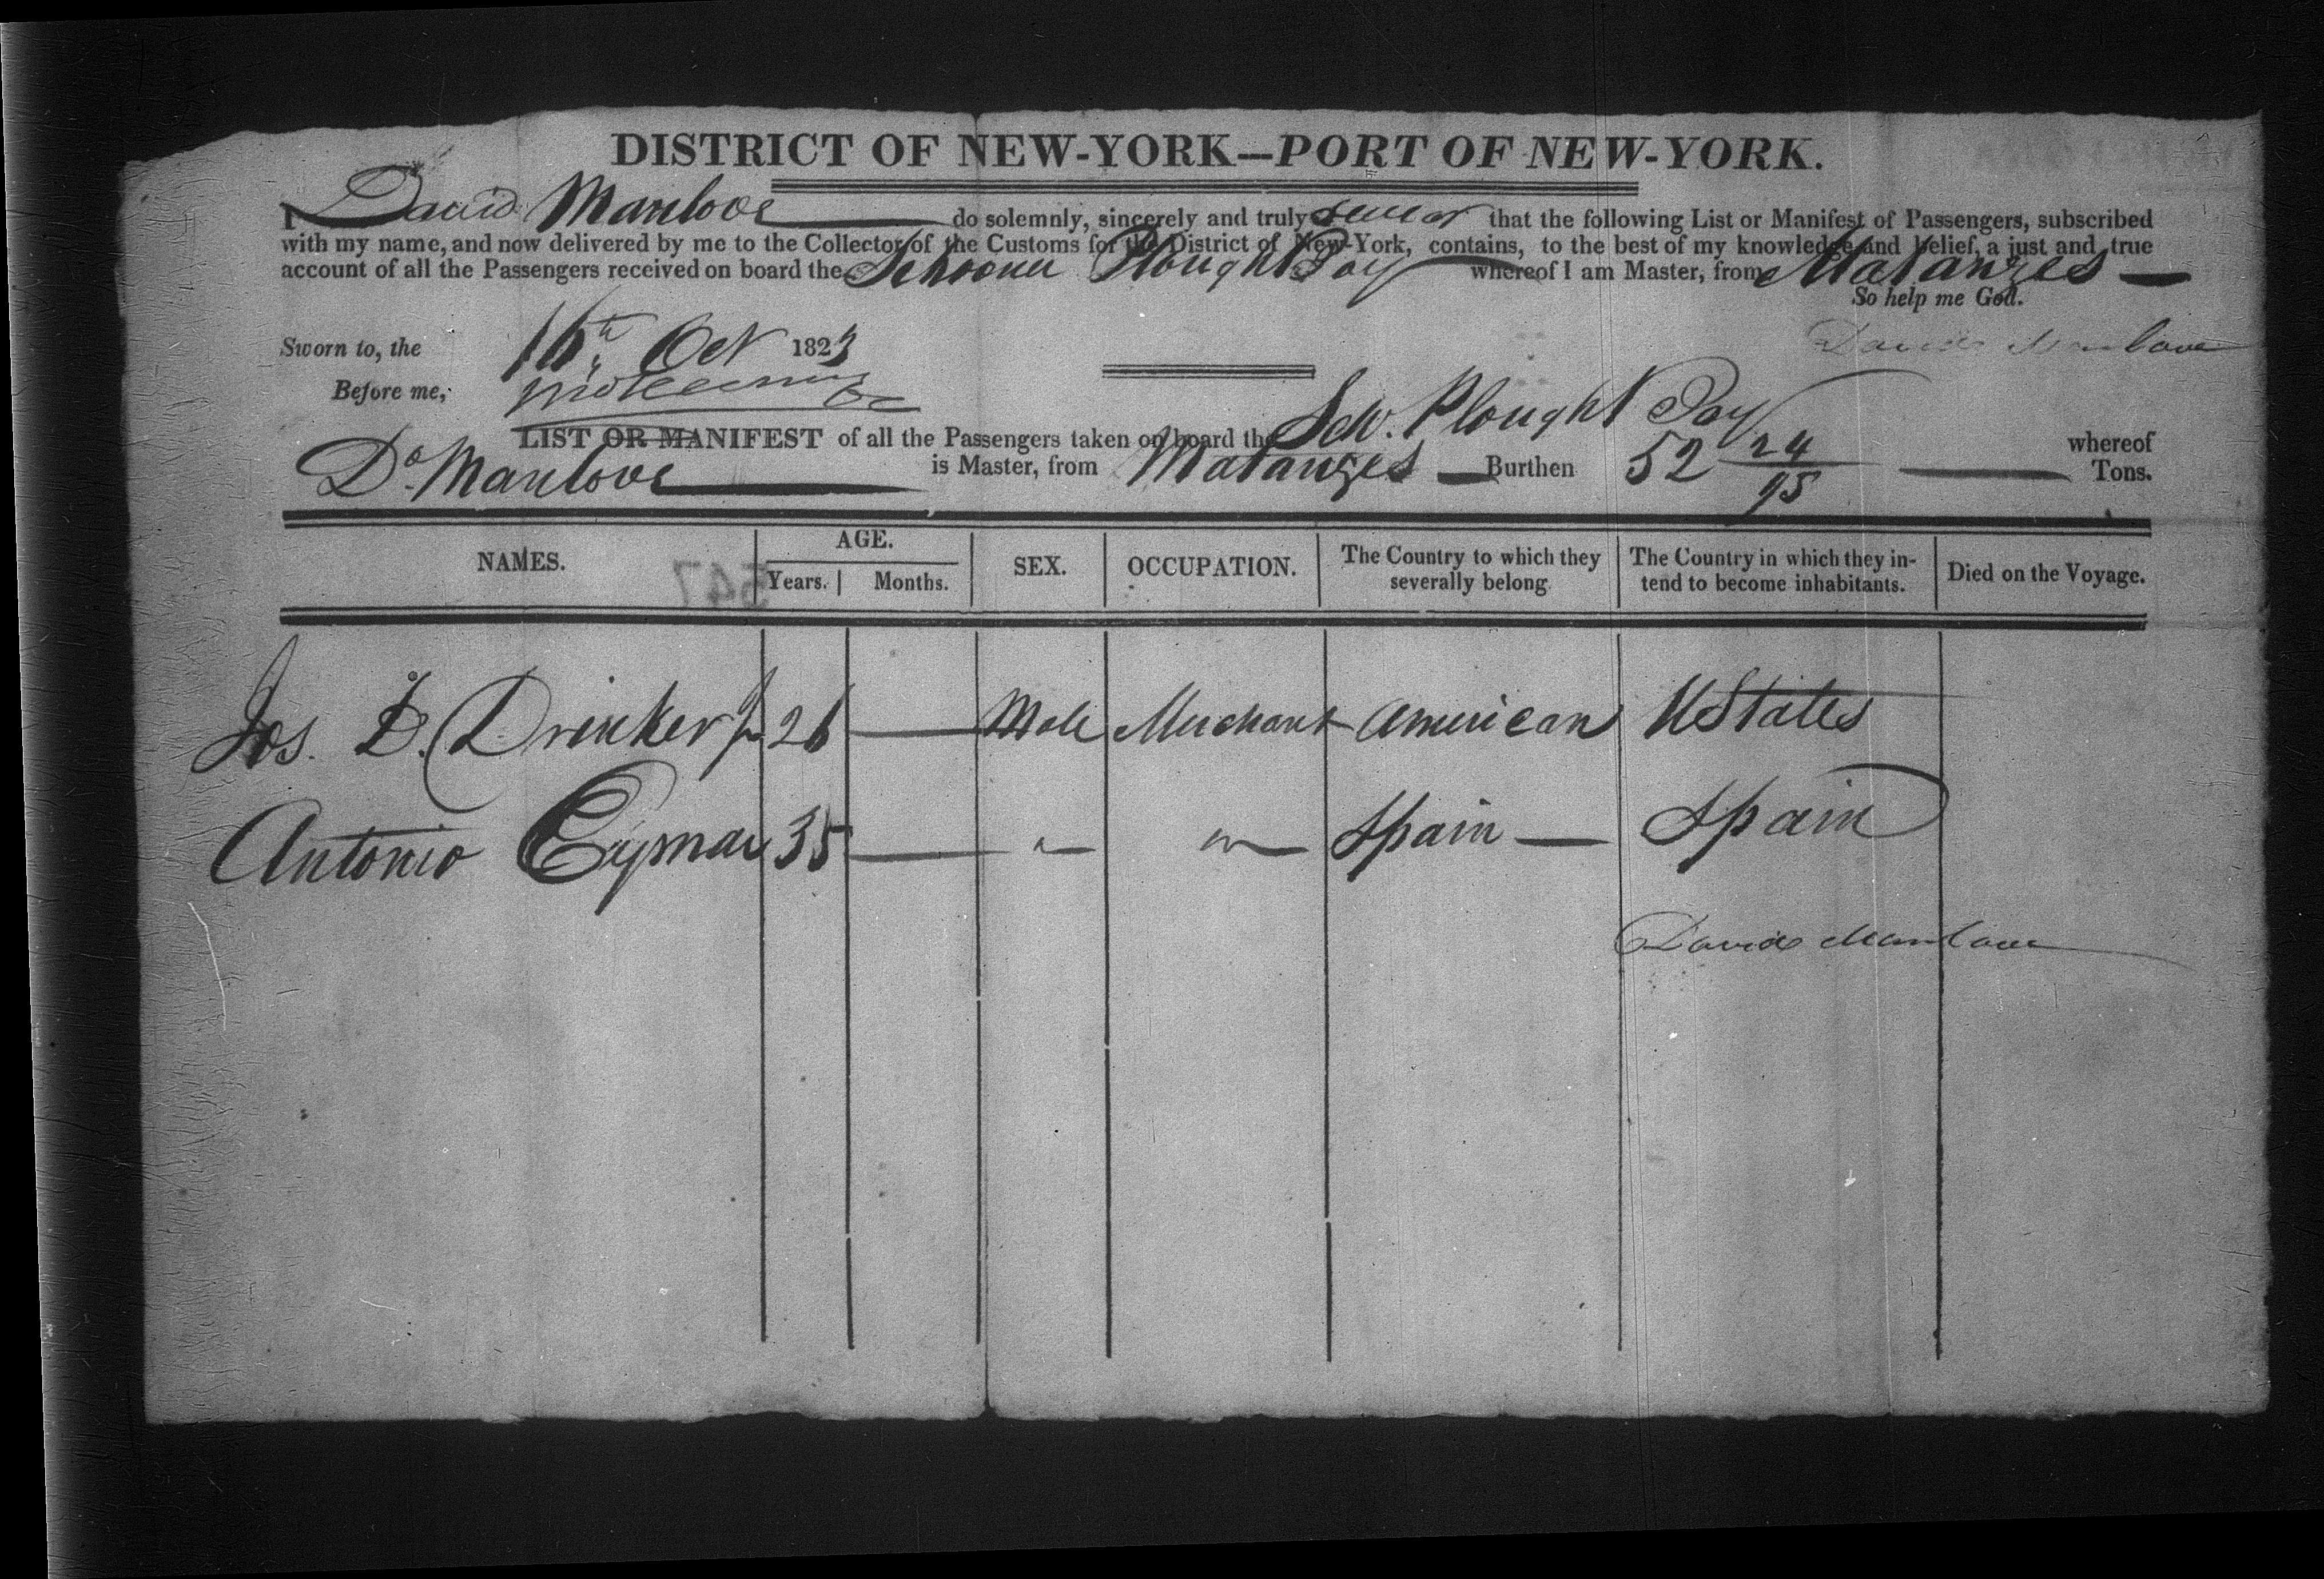 DISTRICT OF NEW-YORK—PORT OF NEW-YORK.
I David Manlove do solemnly, sincerely and truly swear that the following List or Manifest of Passengers, subscribed
with my name, and now delivered by me to the Collector of the Customs for the District of New-York, contains, to the best of my knowledge and belief, a just and true
account of all the Passengers received on board the Schooner Plough Boy whereof I am Master, from Matanzes
So help me God.
Sworn to, the 16th Oct 1823 David Manlove
Before me,
LIST OR MANIFEST of all the Passengers taken on board the Schr. Plough Boy whereof
Dd. Manlove is Master, from Matanzes Burthen 52 24/95 Tons.
NAMES. AGE. Years. Months. SEX. OCCUPATION. The Country to which they severally belong. The Country in which they intend to become inhabitants. Died on the Voyage.
547
Jos. D. Drinker Jr 26 — Male Merchant American U States
Antonio 35 — " " Spain — Spain
David Manlove